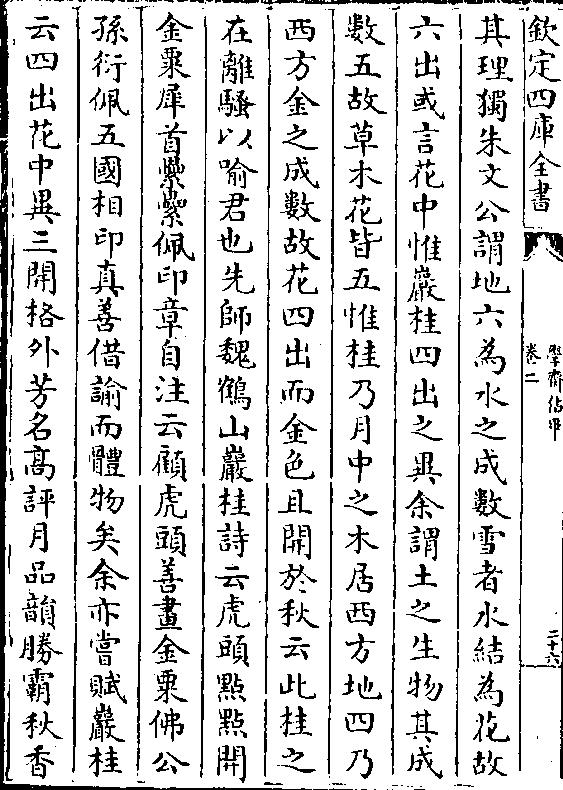 欽定四庫全書
學齋佔畢
卷二
二十六
其理獨朱文公謂地六為水之成數雪者水結為花故
六出或言花中惟巖桂四出之異余謂土之生物其成
數五故草木花皆五惟桂乃月中之木居西方地四乃
西方金之成數故花四出而金色且開於秋云此桂之
在離騷以喻君也先師魏鶴山巖桂詩云虎頭點點開
金粟犀首纍纍佩印章自注云顧虎頭善畫金粟佛公
孫衍佩五國相印真善借諭而體物矣余亦嘗賦巖桂
云四出花中異三開格外芳名髙評月品韻勝霸秋香